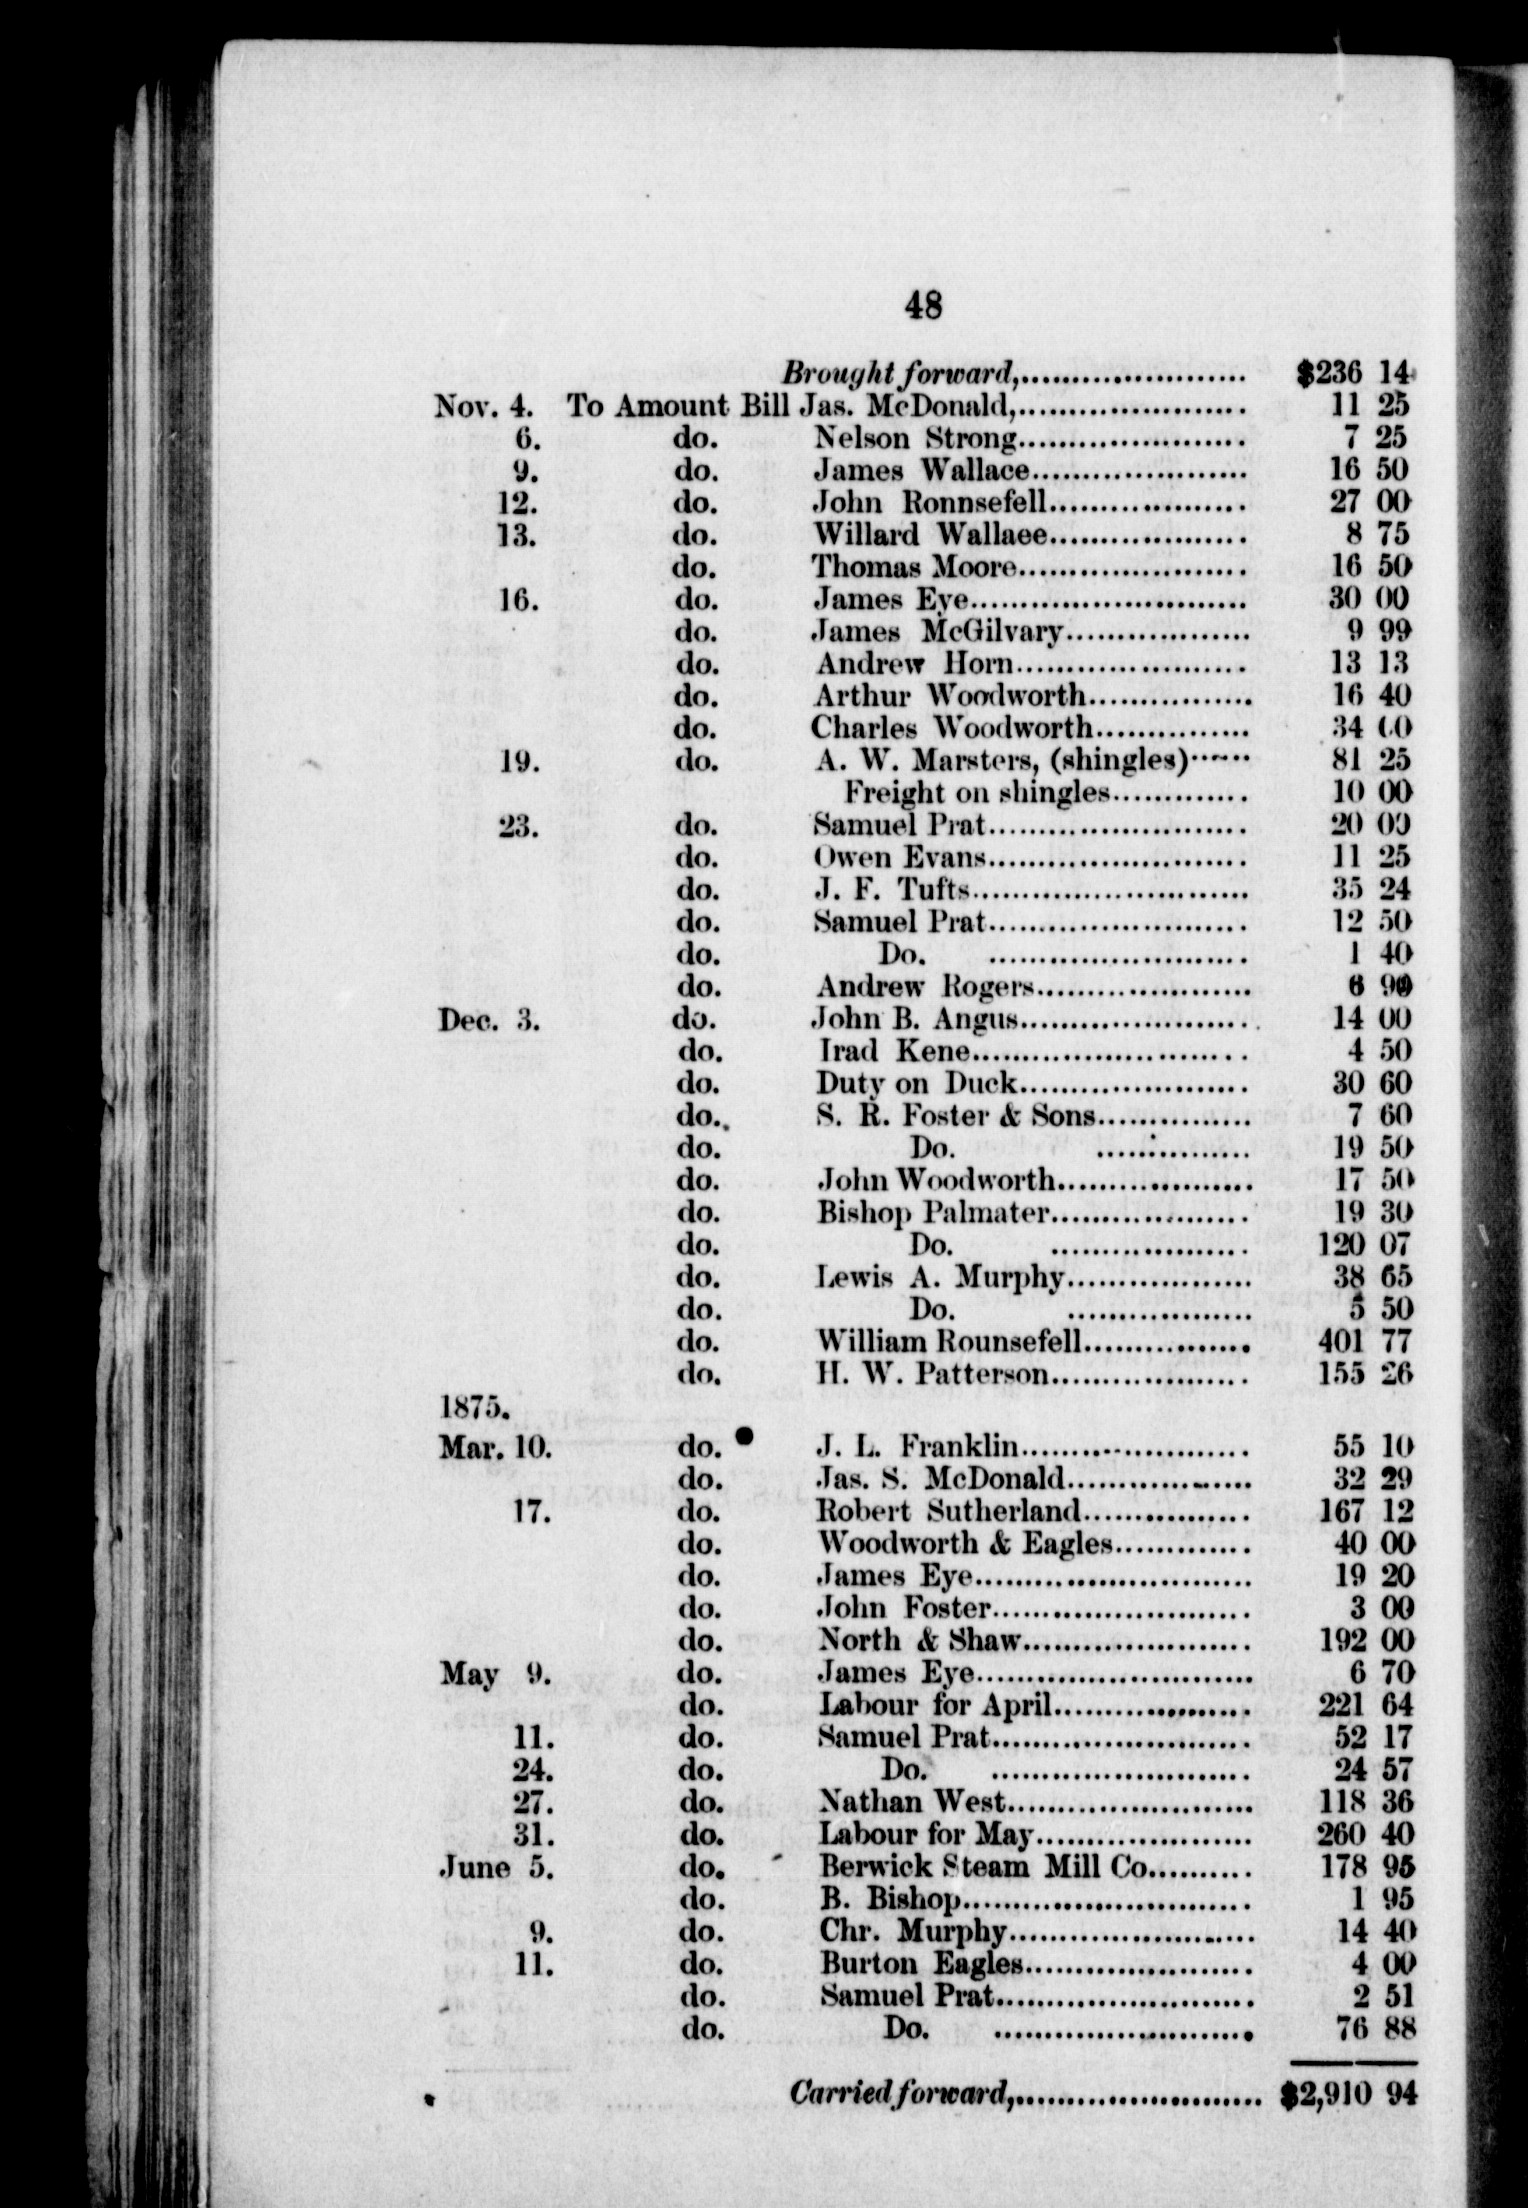 48
Brought forward,....................... $236 14
Nov. 4. To Amount Bill Jas. McDonald,....................... 11 25
6. do. Nelson Strong....................... 7 25
9. do. James Wallace...................... 16 50
12. do. John Ronnsefell.................... 27 00
13. do. Willard Wallaee.................... 8 75
do. Thomas Moore....................... 16 50
16. do. James Eye............................ 30 00
do. James McGilvary................... 9 99
do. Andrew Horn....................... 13 13
do. Arthur Woodworth................. 16 40
do. Charles Woodworth............... 34 00
19. do. A. W. Marsters, (shingles)...... 81 25
Freight on shingles............. 10 00
23. do. Samuel Prat.......................... 20 00
do. Owen Evans.......................... 11 25
do. J. F. Tufts............................ 35 24
do. Samuel Prat.......................... 12 50
do. Do. .......................... 1 40
do. Andrew Rogers...................... 6 90
Dec. 3. do. John B. Angus........................ 14 00
do. Irad Kene............................ 4 50
do. Duty on Duck....................... 30 60
do. S. R. Foster & Sons................ 7 60
do. Do. ................ 19 50
do. John Woodworth.................... 17 50
do. Bishop Palmater.................... 19 30
do. Do. .................... 120 07
do. Lewis A. Murphy................... 38 65
do. Do. ................... 5 50
do. William Rounsefell................. 401 77
do. H. W. Patterson.................... 155 26
1875.
Mar. 10. do. J. L. Franklin....................... 55 10
do. Jas. S. McDonald................... 32 29
17. do. Robert Sutherland................. 167 12
do. Woodworth & Eagles.............. 40 00
do. James Eye............................ 19 20
do. John Foster.......................... 3 00
do. North & Shaw....................... 192 00
May 9. do. James Eye............................ 6 70
do. Labour for April.................... 221 64
11. do. Samuel Prat.......................... 52 17
24. do. Do. .......................... 24 57
27. do. Nathan West......................... 118 36
31. do. Labour for May...................... 260 40
June 5. do. Berwick Steam Mill Co.......... 178 95
do. B. Bishop............................. 1 95
9. do. Chr. Murphy......................... 14 40
11. do. Burton Eagles....................... 4 00
do. Samuel Prat.......................... 2 51
do. Do. .......................... 76 88
Carried forward,......................... $2,910 94